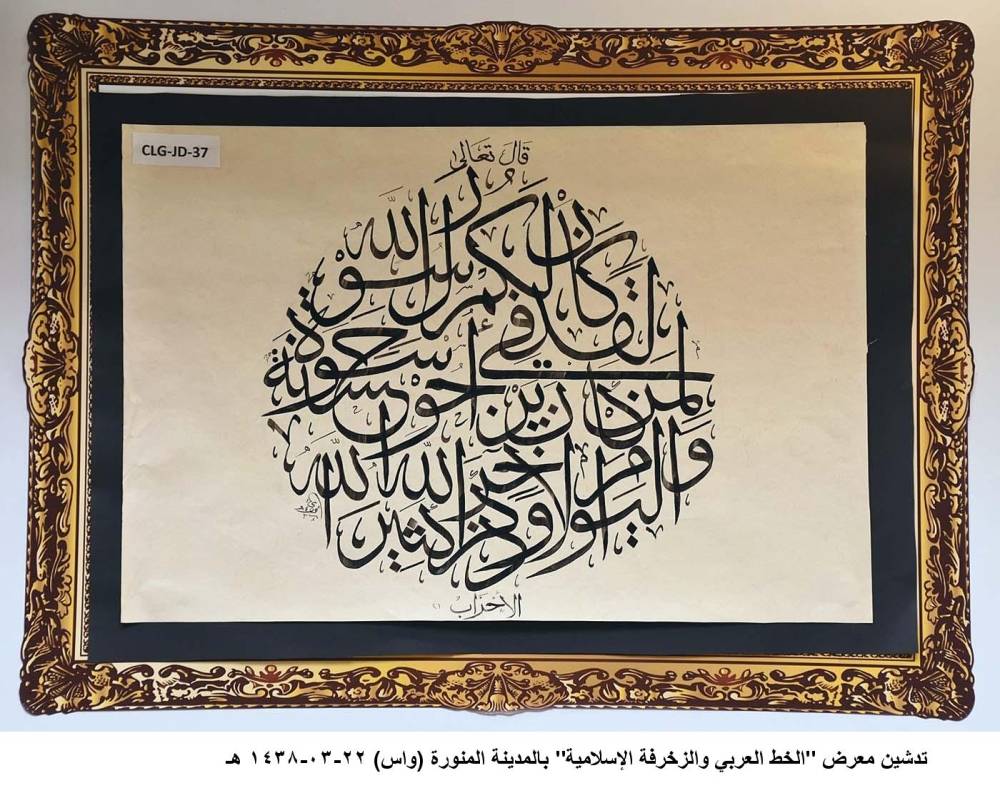 CLG-JD-37
قال تعالى
لقد كان لكم في رسول الله أسوة حسنة لمن كان يرجو الله واليوم الآخر وذكر الله كثيرا
الأحزاب ٢١
تدشين معرض "الخط العربي والزخرفة الإسلامية" بالمدينة المنورة (واس) ٢٢-٠٣-١٤٣٨ هـ